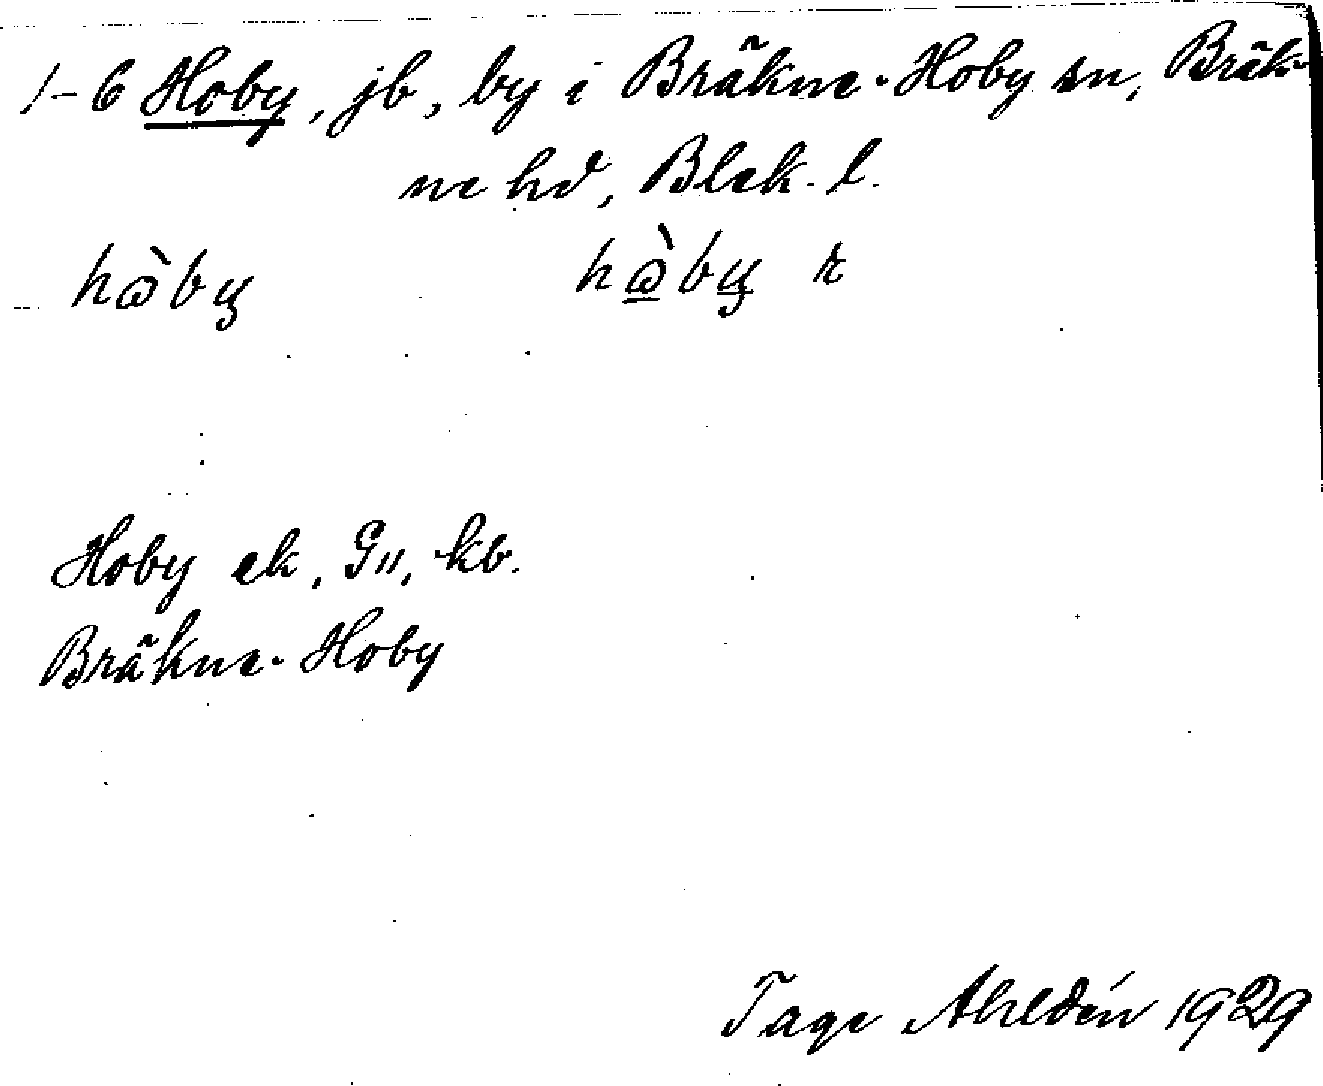 1-6 Hoby, jb, by i Bräkne-Hoby sn, Bräk-
ne hd, Blek. l.
hὼby hὼby r
Hoby ek, G11, kb.
Bräkne-Hoby
Tage Ahldén 1929